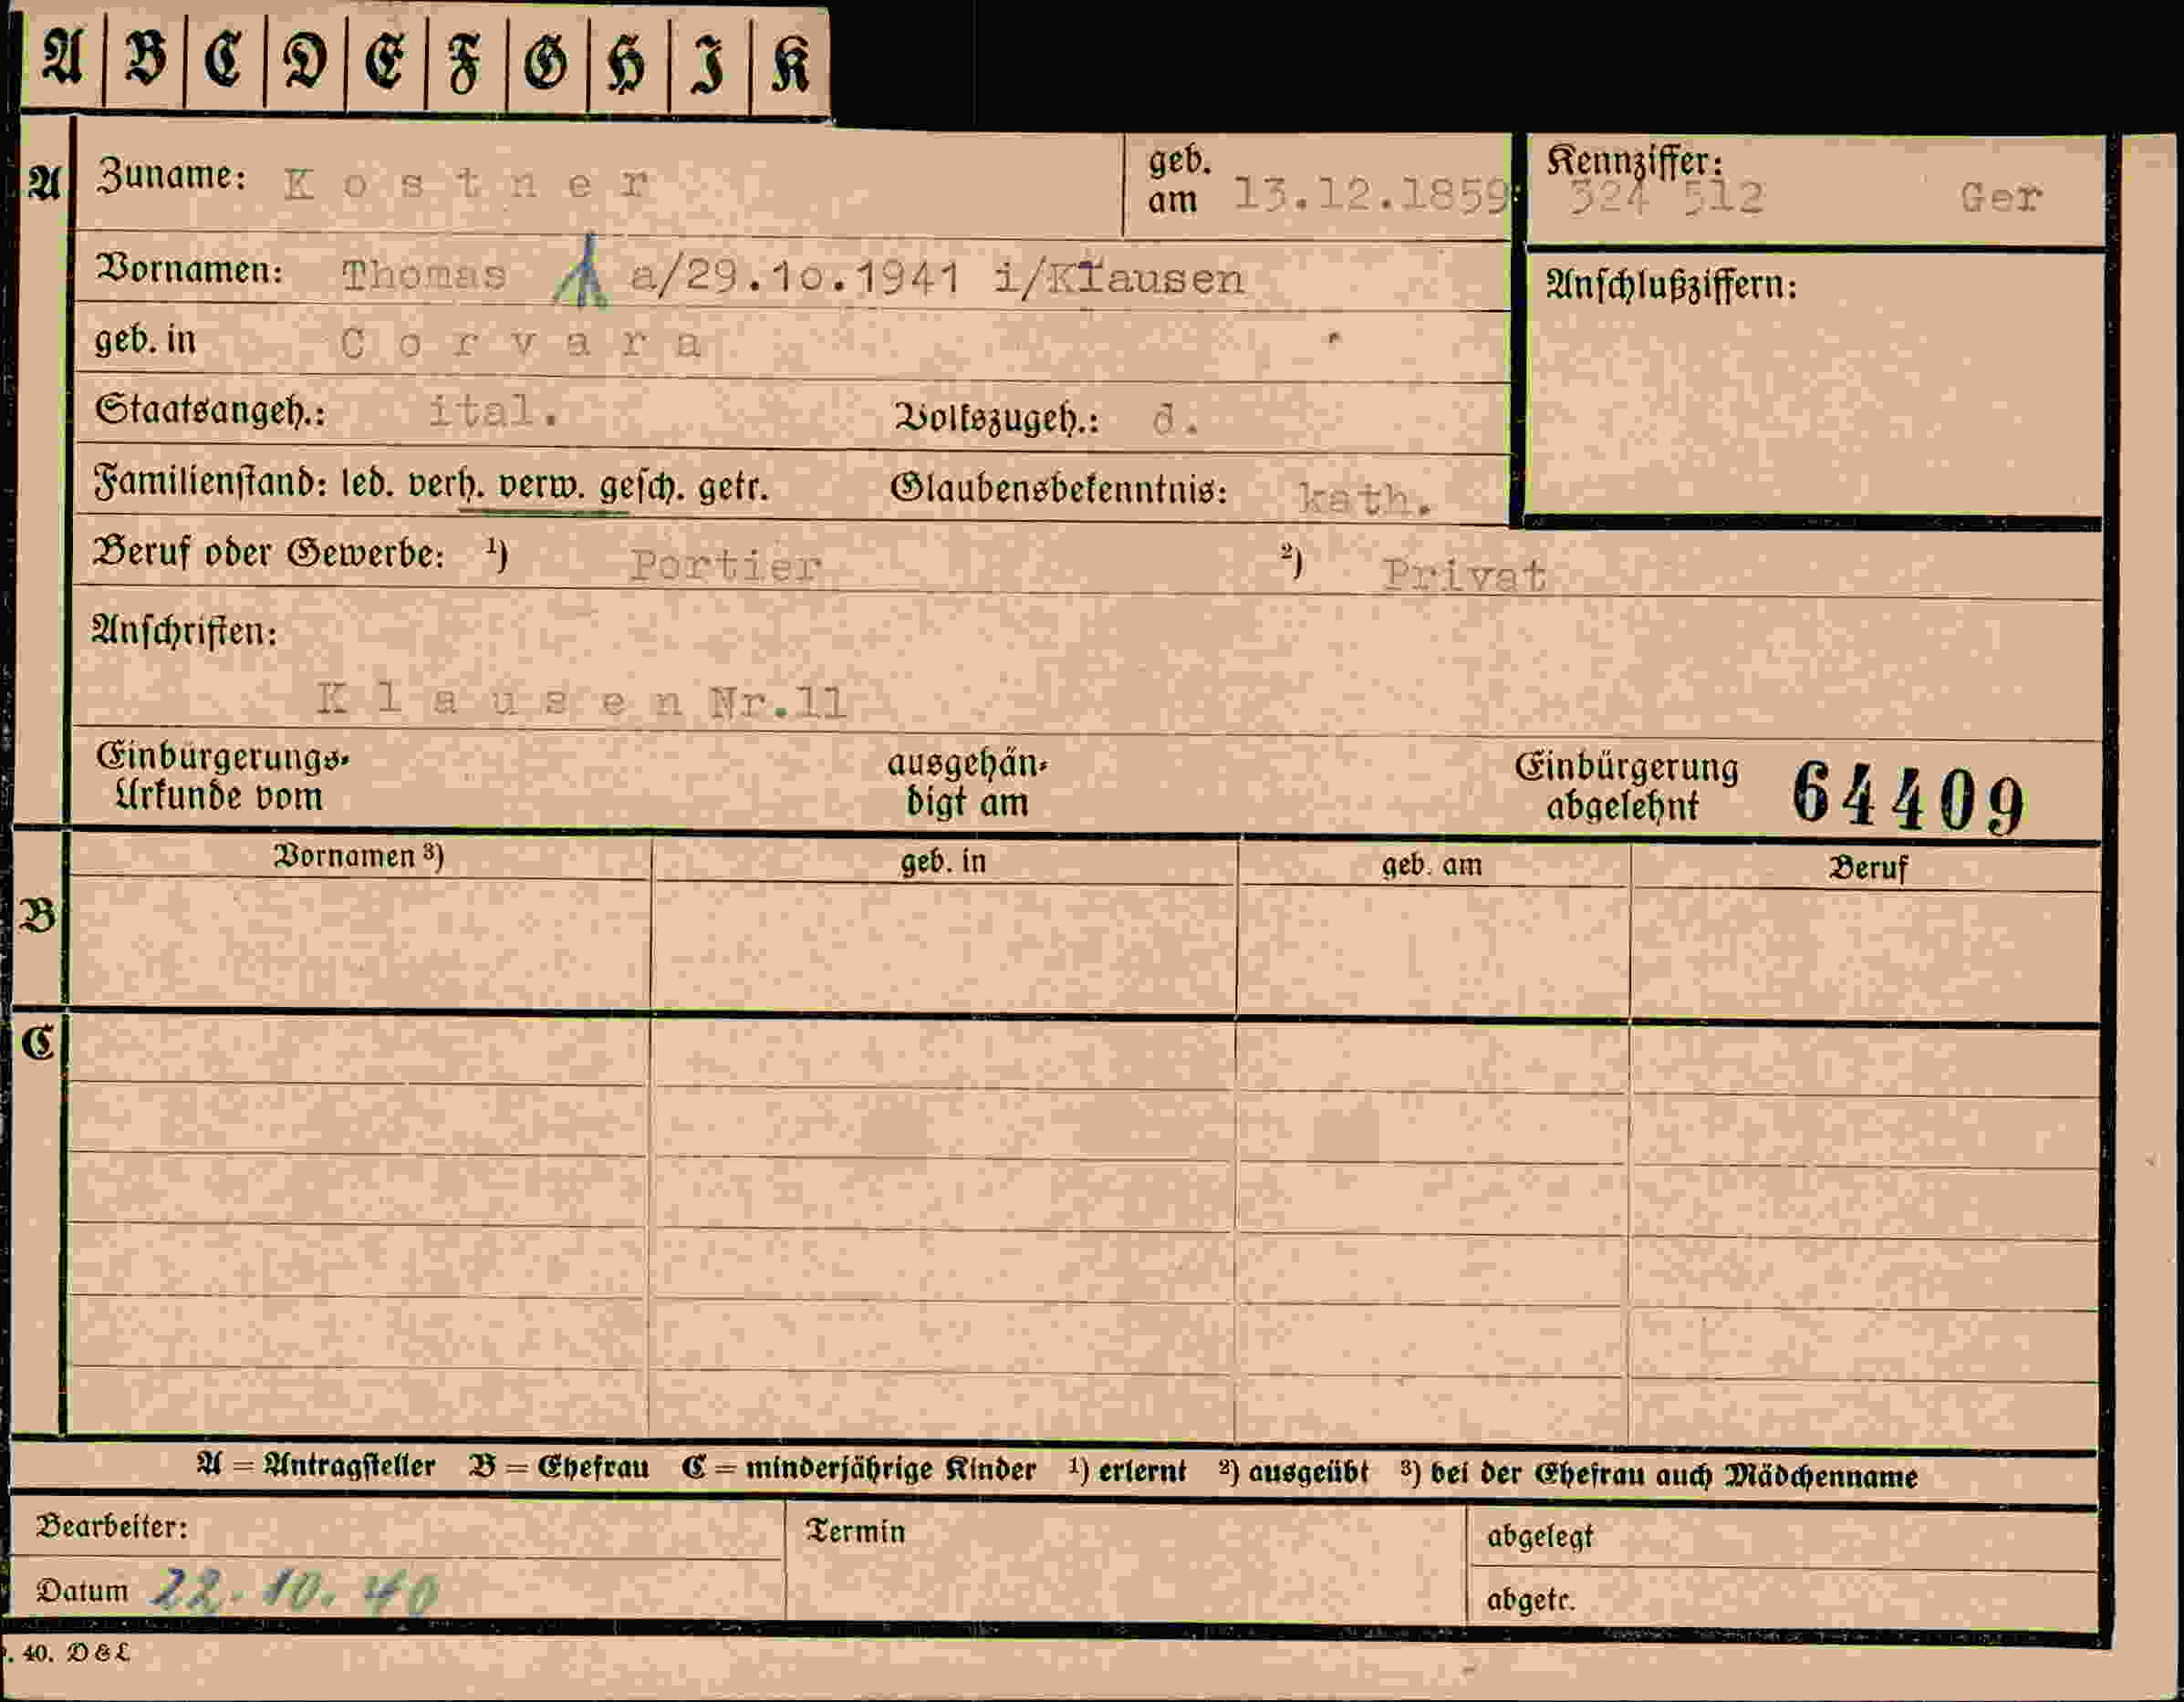 A B C D E F G H I K
A Zuname: Kostner geb. am 13.12.1859 Kennziffer: 324 512 Ger
Vornamen: Thomas a/29.10.1941 i/Klausen Anschlußziffern:
geb. in Corvara
Staatsangeh.: ital. Volkszugeh.: d.
Familienstand: led. verh. verw. gesch. getr. Glaubensbekenntnis: kath.
Beruf oder Gewerbe: ¹) Portier ²) Privat
Anschriften:
Klausen Nr.11
Einbürgerungs- ausgehän- Einbürgerung 64409
Urkunde vom digt am abgelehnt
Vornamen ³) geb. in geb. am Beruf
B
C
A = Antragsteller B = Ehefrau C = minderjährige Kinder ¹) erlernt ²) ausgeübt ³) bei der Ehefrau auch Mädchenname
Bearbeiter: Termin abgelegt
Datum 22.10.40 abgetr.
. 40. D & L